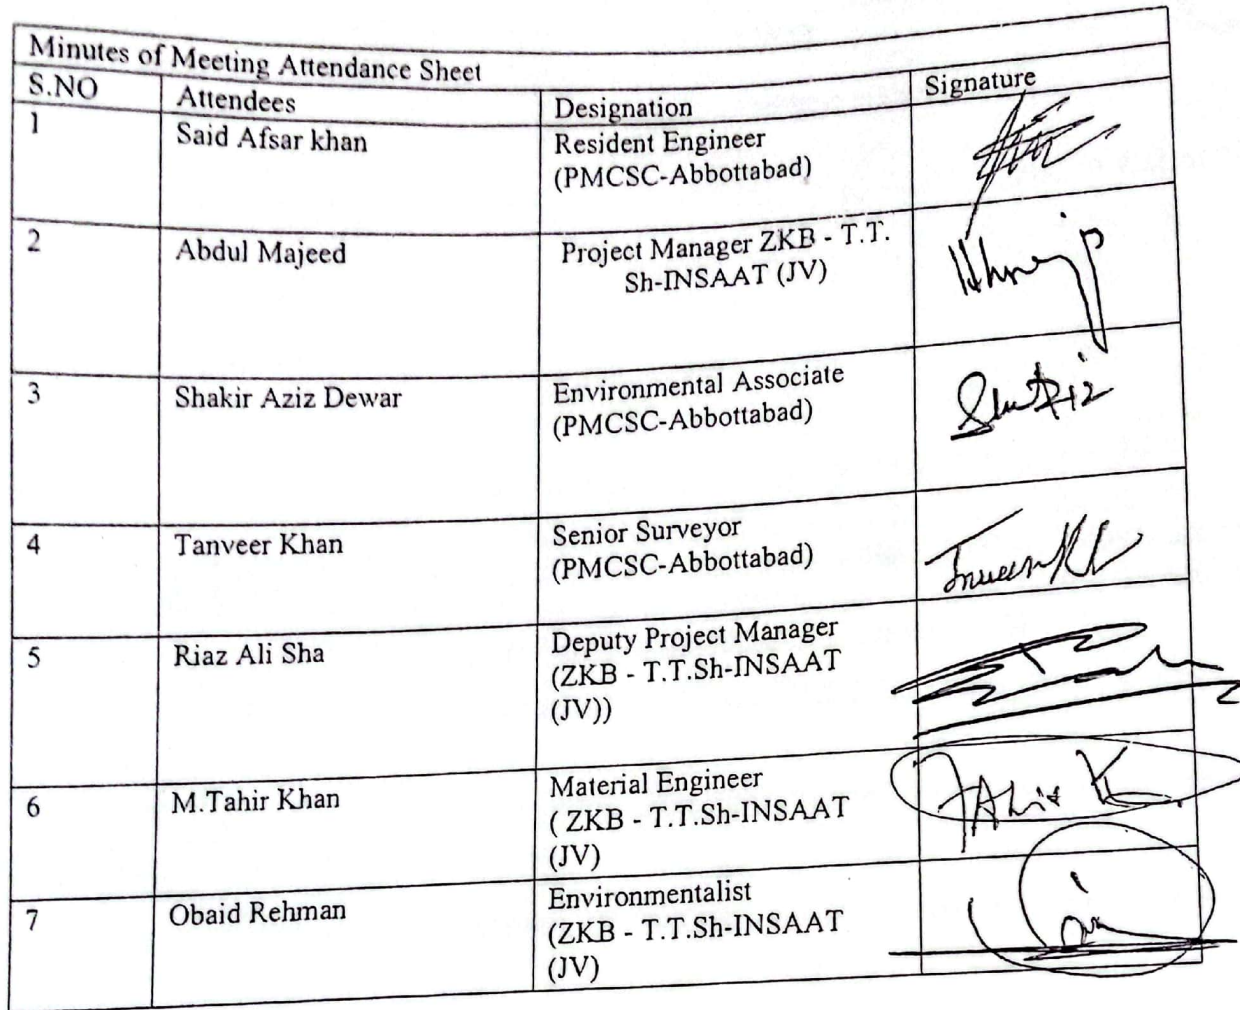 Minutes of Meeting Attendance Sheet
S.NO Attendees Designation Signature
1 Said Afsar khan Resident Engineer
(PMCSC-Abbottabad)
2 Abdul Majeed Project Manager ZKB - T.T.
Sh-INSAAT (JV)
3 Shakir Aziz Dewar Environmental Associate
(PMCSC-Abbottabad)
4 Tanveer Khan Senior Surveyor
(PMCSC-Abbottabad)
5 Riaz Ali Sha Deputy Project Manager
(ZKB - T.T.Sh-INSAAT
(JV))
6 M.Tahir Khan Material Engineer
( ZKB - T.T.Sh-INSAAT
(JV)
7 Obaid Rehman Environmentalist
(ZKB - T.T.Sh-INSAAT
(JV)